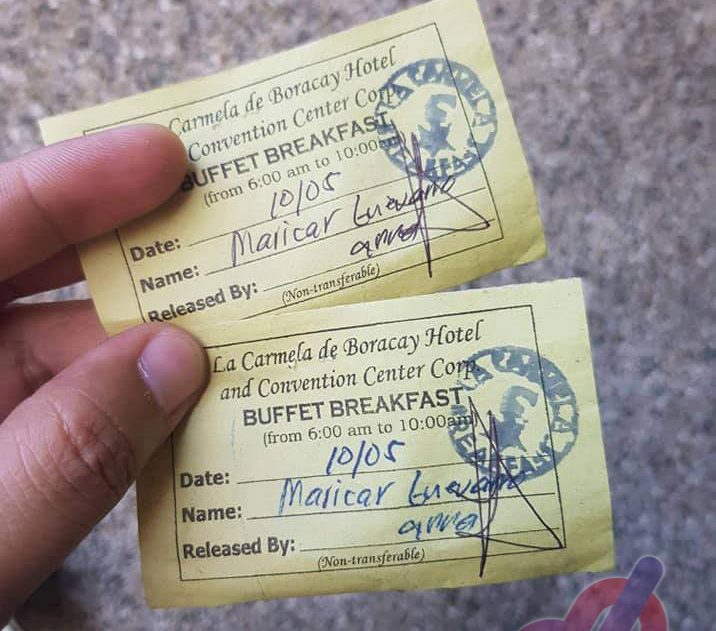 Carmela de Boracay Hotel
Convention Center Corp.
BUFFET BREAKFAST
(from 6:00 am to 10:00am)
Date: 10/05
Name: Maricar Guevarra
Released By: anna
(Non-transferable)
La Carmela de Boracay Hotel
and Convention Center Corp.
BUFFET BREAKFAST
(from 6:00 am to 10:00am)
Date: 10/05
Name: Maricar Guevarra
Released By: anna
(Non-transferable)
LA CARMELA
BREAKFAST